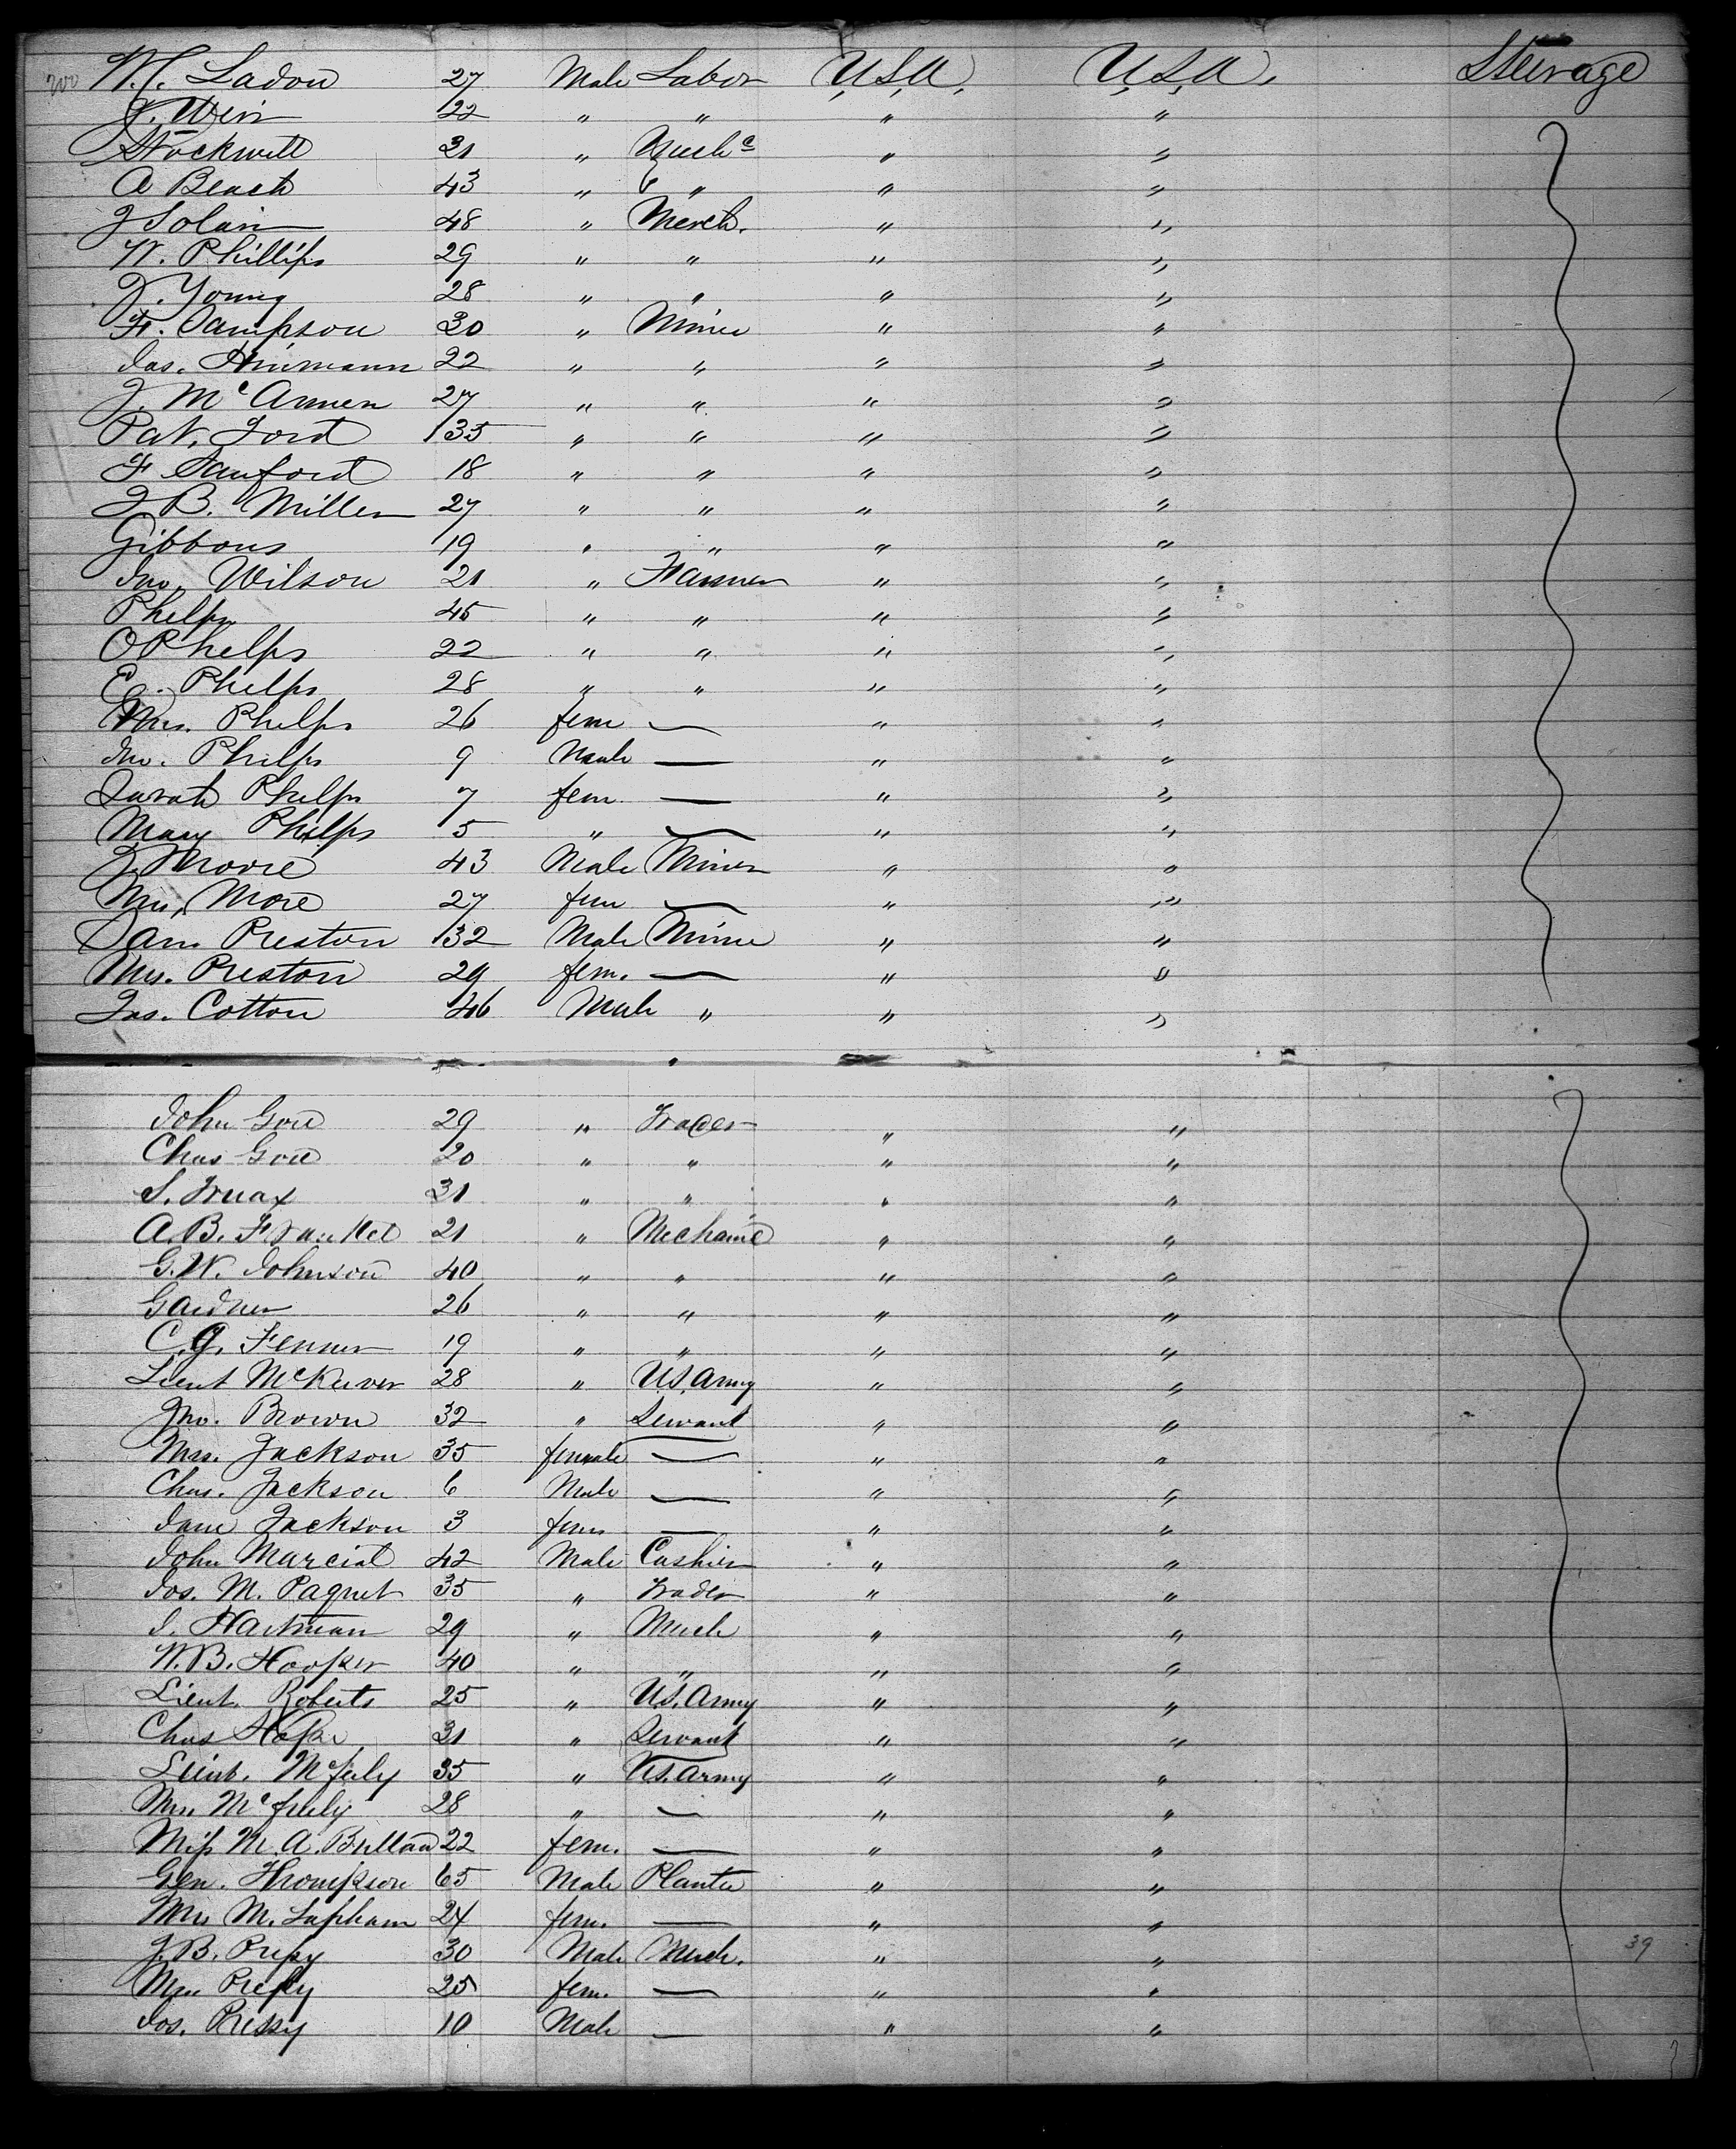 200 W. Ladou 27 Male Labor U.S.A. U.S.A. Steerage
J. Wein 22 " " " "
Stockwell 31 " Mech c " "
A Beach 43 " " " "
J Solain 48 " Merch. " "
W. Phillips 29 " " " "
J. Young 28 " " " "
F. Sampson 30 " Miner " "
Jas. Hinmann 22 " " " "
J. McAnnen 27 " " " "
Pat. Ford 35 " " " "
F Sanford 18 " " " "
J B. Miller 27 " " " "
Gibbons 19 " " " "
Jno. Wilson 21 " Farmer " "
Phelps 45 " " " "
O Phelps 22 " " " "
E. Phelps 28 " " " "
Mrs. Phelps 26 fem — " "
Jno. Phelps 9 Male — " "
Sarah Phelps 7 fem. — " "
Mary Phelps 5 " — " "
J. Moore 43 Male Miner " "
Mrs. More 27 fem — " "
Sam Preston 32 Male Miner " "
Mrs. Preston 29 fem. — " "
Jas. Cotton 46 Male " " "
John Gore 29 " Trader " "
Chas Gore 20 " " " "
S. Truax 31 " " " "
A. B. Frauket 21 " Mechanic " "
G. W. Johnson 40 " " " "
Gardner 26 " " " "
C. G. Fenner 19 " " " "
Lieut McKeever 28 " U.S. Army " "
Jno. Brown 32 " Servant " "
Mrs. Jackson 35 female — " "
Chas. Jackson 6 Male — " "
Jane Jackson 3 fem — " "
John Marcial 42 Male Cashier " "
Jos. M. Paquet 35 " Trader " "
J. Hartman 29 " Merch " "
W. B. Hooper 40 " " " "
Lieut. Roberts 25 " U.S. Army " "
Chas Hope 31 " Servant " "
Lieut. McFeely 35 " U.S. Army " "
Mrs. McFeely 28 " — " "
Miss M. A. Bullard 22 fem. — " "
Gen. Thompson 65 Male Planter " "
Mrs M. Lapham 24 fem. — " "
J. B. Pressy 30 Male Merch. " " 39
Mrs Pressy 25 fem. — " "
Jos. Pressy 10 Male — " "